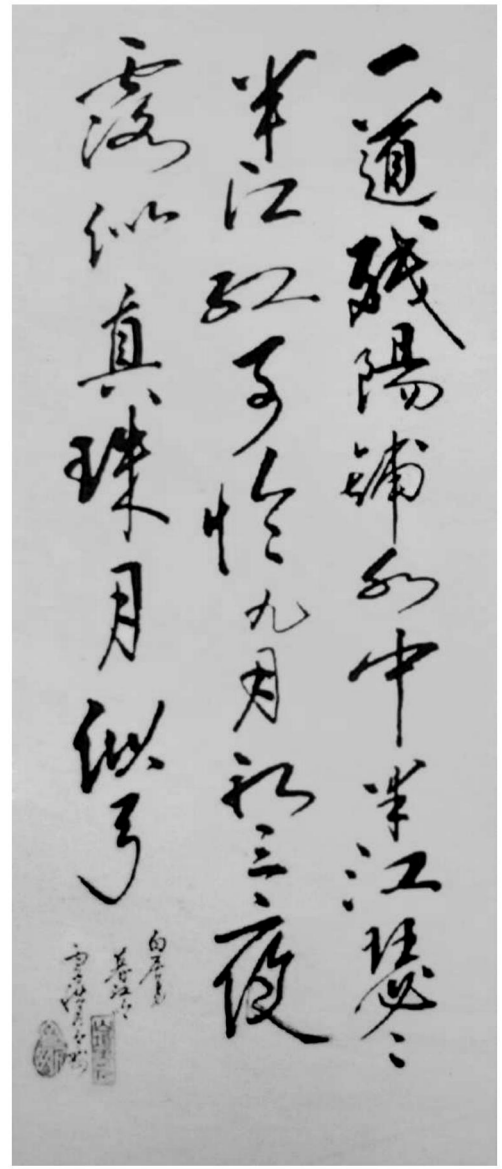 一道残陽鋪水中半江瑟々
半江紅可怜九月初三夜
露似真珠月似弓
白居易
暮江吟